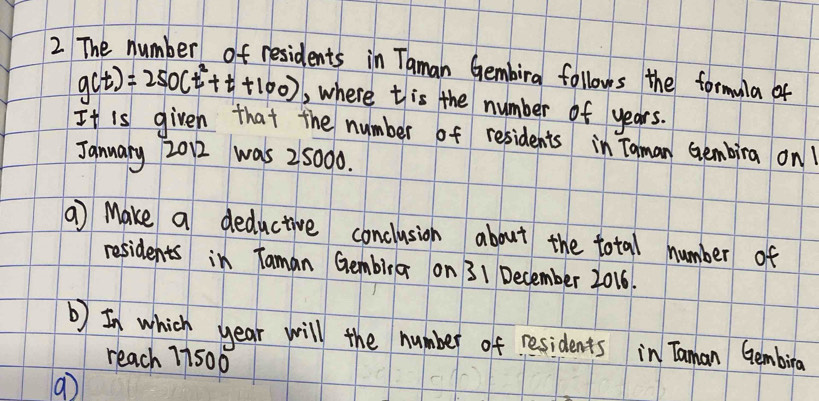 2 The number of residents in Taman Gembira follows the formula of
g(t) = 250(t² + t + 100), where t is the number of years.
It is given that the number of residents in Taman Gembira on 1
January 2012 was 25000.
a) Make a deductive conclusion about the total number of
residents in Taman Gembira on 31 December 2016.
b) In which year will the number of residents in Taman Gembira
reach 77500
a)